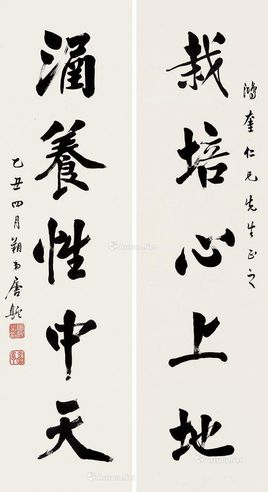 鴻奎仁兄先生正之
栽培心上地
涵養性中天
乙丑四月朔日 唐駝